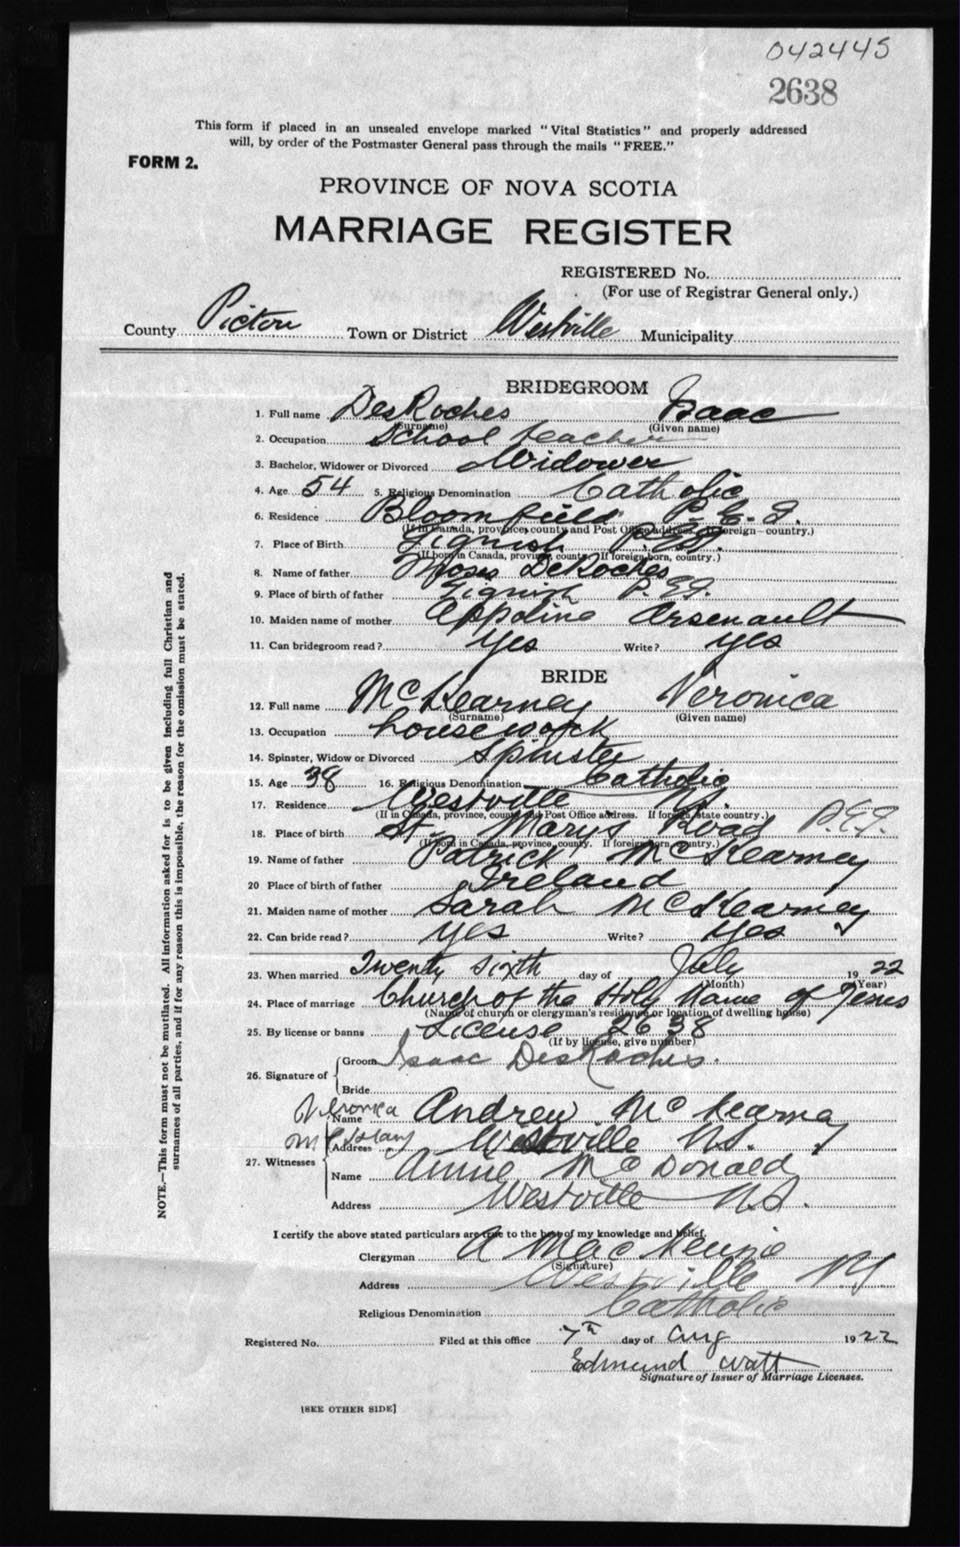 042445
2638
This form if placed in an unsealed envelope marked "Vital Statistics" and properly addressed
will, by order of the Postmaster General pass through the mails "FREE."
FORM 2.
PROVINCE OF NOVA SCOTIA
MARRIAGE REGISTER
REGISTERED No.
(For use of Registrar General only.)
County Pictou Town or District Westville Municipality
BRIDEGROOM
1. Full name DesRoches Isaac
(Surname) (Given name)
2. Occupation School teacher
3. Bachelor, Widower or Divorced Widower
4. Age 54 5. Religious Denomination Catholic
6. Residence Bloomfield P.E.I.
(If in Canada, province, county and Post Office address. If foreign—country.)
7. Place of Birth Tignish P.E.I.
(If born in Canada, province, county. If foreign born, country.)
8. Name of father Moses DeRoches
9. Place of birth of father Tignish P.E.I.
10. Maiden name of mother Appoline Arsenault
11. Can bridegroom read? yes Write? yes
BRIDE
12. Full name McKearney Veronica
(Surname) (Given name)
13. Occupation housework
14. Spinster, Widow or Divorced Spinster
15. Age 38 16. Religious Denomination Catholic
17. Residence Westville N.S.
(If in Canada, province, county and Post Office address. If foreign state country.)
18. Place of birth St. Marys Road P.E.I.
(If born in Canada, province, county. If foreign born, country.)
19. Name of father Patrick McKearney
20 Place of birth of father Ireland
21. Maiden name of mother Sarah McKearney
22. Can bride read? yes Write? yes
23. When married Twenty Sixth day of July 19 22
(Month) (Year)
24. Place of marriage Church of the Holy Name of Jesus
(Name of church or clergyman's residence or location of dwelling house)
25. By license or banns License 2638
(If by license, give number)
26. Signature of Groom Isaac DesRoches.
Bride
Veronica
27. Witnesses Name Andrew McKearney
Address Westville N.S.
Name Annie McDonald
Address Westville N.S.
I certify the above stated particulars are true to the best of my knowledge and belief.
Clergyman A MacKenzie
(Signature)
Address Westville N.S.
Religious Denomination Catholic
Registered No. Filed at this office 7th day of Aug 1922
Edmund Watt
Signature of Issuer of Marriage Licenses.
[SEE OTHER SIDE]
NOTE.—This form must not be mutilated. All information asked for is to be given including full Christian and
surnames of all parties, and if for any reason this is impossible, the reason for the omission must be stated.